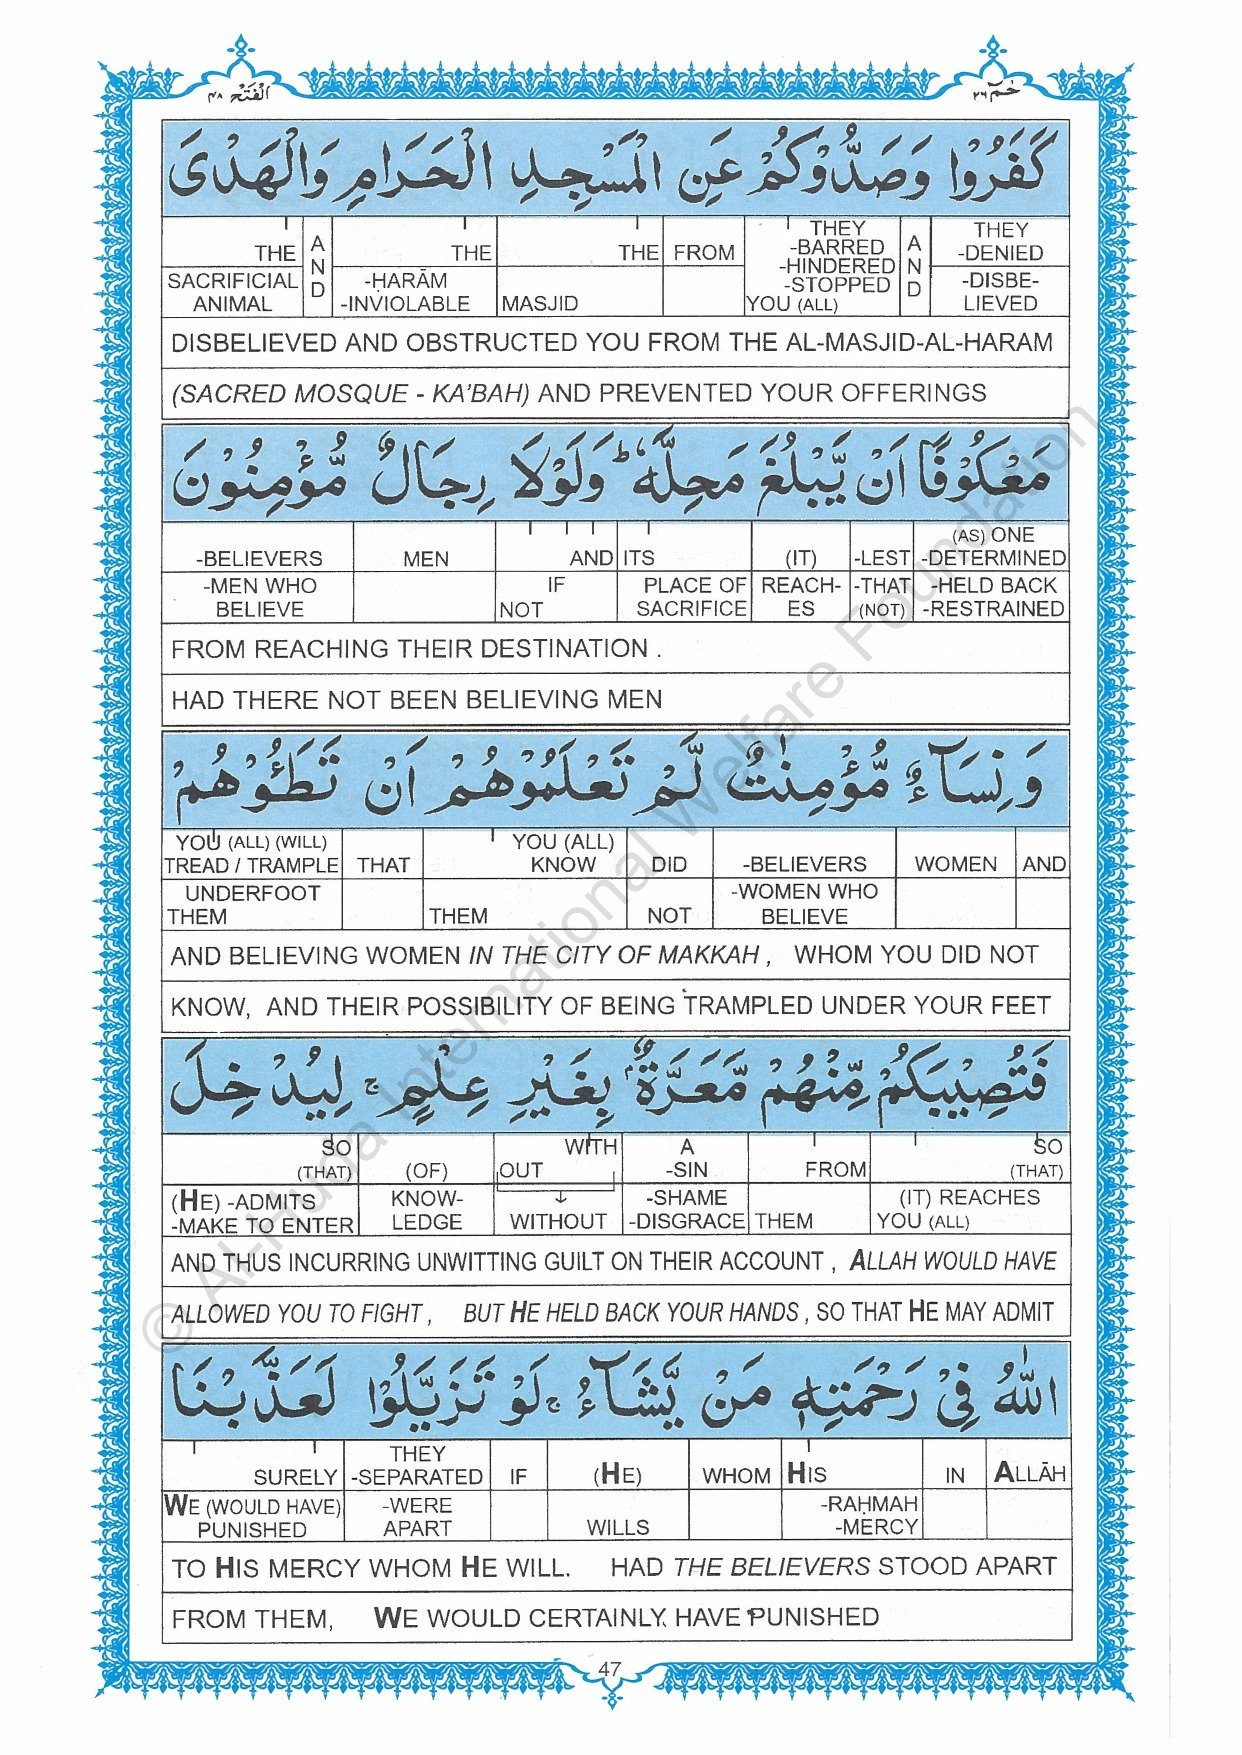 الفتح ٤٨
حٰمٓ ٢٦
كَفَرُوْا وَصَدُّوْكُمْ عَنِ الْمَسْجِدِ الْحَرَامِ وَالْهَدْىَ
THE AND THE THE FROM THEY -BARRED -HINDERED -STOPPED YOU (ALL) AND THEY -DENIED
SACRIFICIAL ANIMAL -ḤARĀM -INVIOLABLE MASJID -DISBE- LIEVED
DISBELIEVED AND OBSTRUCTED YOU FROM THE AL-MASJID-AL-HARAM
(SACRED MOSQUE - KA'BAH) AND PREVENTED YOUR OFFERINGS
مَعْكُوْفًا اَنْ يَّبْلُغَ مَحِلَّهٗ ؕ وَلَوْلَا رِجَالٌ مُّؤْمِنُوْنَ
-BELIEVERS MEN AND ITS (IT) -LEST (AS) ONE -DETERMINED
-MEN WHO BELIEVE IF NOT PLACE OF SACRIFICE REACH- ES -THAT (NOT) -HELD BACK -RESTRAINED
FROM REACHING THEIR DESTINATION .
HAD THERE NOT BEEN BELIEVING MEN
وَ نِسَآءٌ مُّؤْمِنٰتٌ لَّمْ تَعْلَمُوْهُمْ اَنْ تَطَـُٔوْهُمْ
YOU (ALL) (WILL) TREAD / TRAMPLE THAT YOU (ALL) KNOW DID -BELIEVERS WOMEN AND
UNDERFOOT THEM THEM NOT -WOMEN WHO BELIEVE
AND BELIEVING WOMEN IN THE CITY OF MAKKAH , WHOM YOU DID NOT
KNOW, AND THEIR POSSIBILITY OF BEING TRAMPLED UNDER YOUR FEET
فَتُصِيْبَكُمْ مِّنْهُمْ مَّعَرَّةٌۢ بِغَيْرِ عِلْمٍ ۚ لِيُدْخِلَ
SO (THAT) (OF) WITH OUT A -SIN FROM SO (THAT)
(HE) -ADMITS -MAKE TO ENTER KNOW- LEDGE ↓ WITHOUT -SHAME -DISGRACE THEM (IT) REACHES YOU (ALL)
AND THUS INCURRING UNWITTING GUILT ON THEIR ACCOUNT , ALLAH WOULD HAVE
ALLOWED YOU TO FIGHT , BUT HE HELD BACK YOUR HANDS , SO THAT HE MAY ADMIT
اللّٰهُ فِىْ رَحْمَتِهٖ مَنْ يَّشَآءُ ۚ لَوْ تَزَيَّلُوْا لَعَذَّبْنَا
SURELY THEY -SEPARATED IF (HE) WHOM HIS IN ALLĀH
WE (WOULD HAVE) PUNISHED -WERE APART WILLS -RAḤMAH -MERCY
TO HIS MERCY WHOM HE WILL. HAD THE BELIEVERS STOOD APART
FROM THEM, WE WOULD CERTAINLY HAVE PUNISHED
47
© Al-Huda International Welfare Foundation